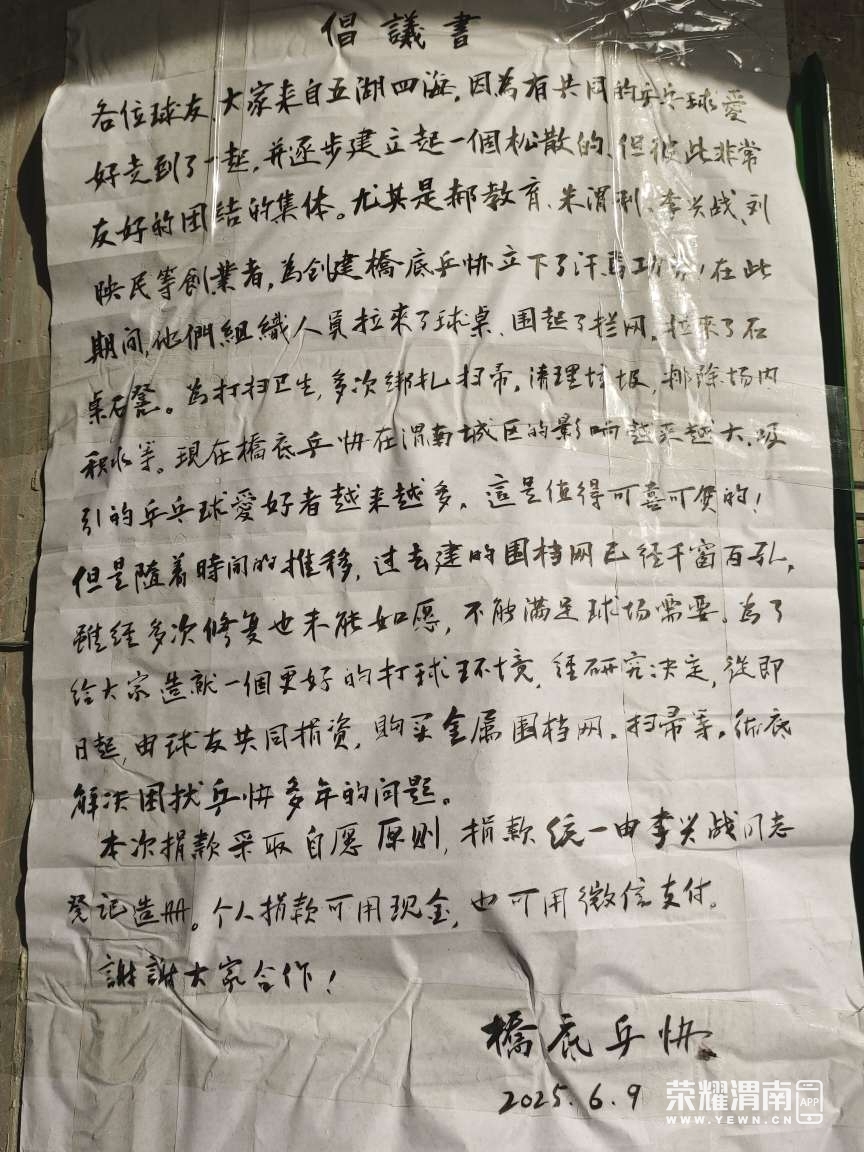 倡議書
各位球友、大家来自五湖四海，因為有共同的乒乓球愛
好走到了一起，并逐步建立起一個松散的、但彼此非常
友好的团结的集体。尤其是郝教育、朱渭利、李兴战、刘
映民等創業者，為创建橋底乒协立下了汗马功劳！在此
期间，他們組織人員拉来了球桌、围起了拦网，拉来了石
桌石凳。為打扫卫生，多次绑扎扫帚，清理垃圾，排除场内
积水等。現在橋底乒协在渭南城区的影响越来越大，吸
引的乒乓球愛好者越来越多，這是值得可喜可贺的！
但是隨着時间的推移，过去建的围档网已经千窗百孔，
雖经多次修复也未能如愿，不能满足球场需要。為了
给大家造就一個更好的打球环境，经研究决定，從即
日起，由球友共同捐资，购买金属围档网、扫帚等。彻底
解决困扰乒协多年的问题。
本次捐款采取自愿原则，捐款统一由李兴战同志
登记造册。个人捐款可用现金，也可用微信支付。
謝謝大家合作！
橋底乒协
2025.6.9
荣耀渭南APP
WWW.YEWN.CN